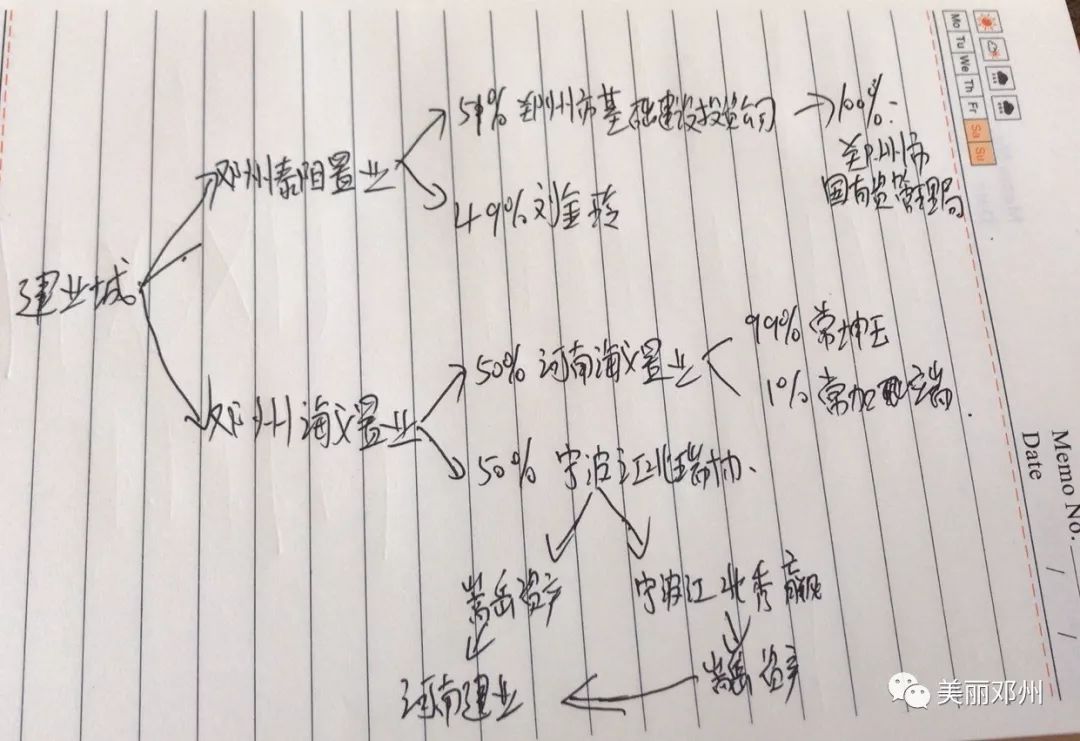 建业城
邓州泰阳置业
51% 邓州市基础建设投资公司
100%:
邓州市
国有资管理局
49% 刘金玲
邓州海义置业
50% 河南海义置业
99% 常坤玉
1% 常加
50% 宁波江北瑞协
嵩岳资产
宁波江北秀赢
嵩岳资产
河南建业
Memo No.
Date
Mo Tu We Th Fr Sa Su
美丽邓州